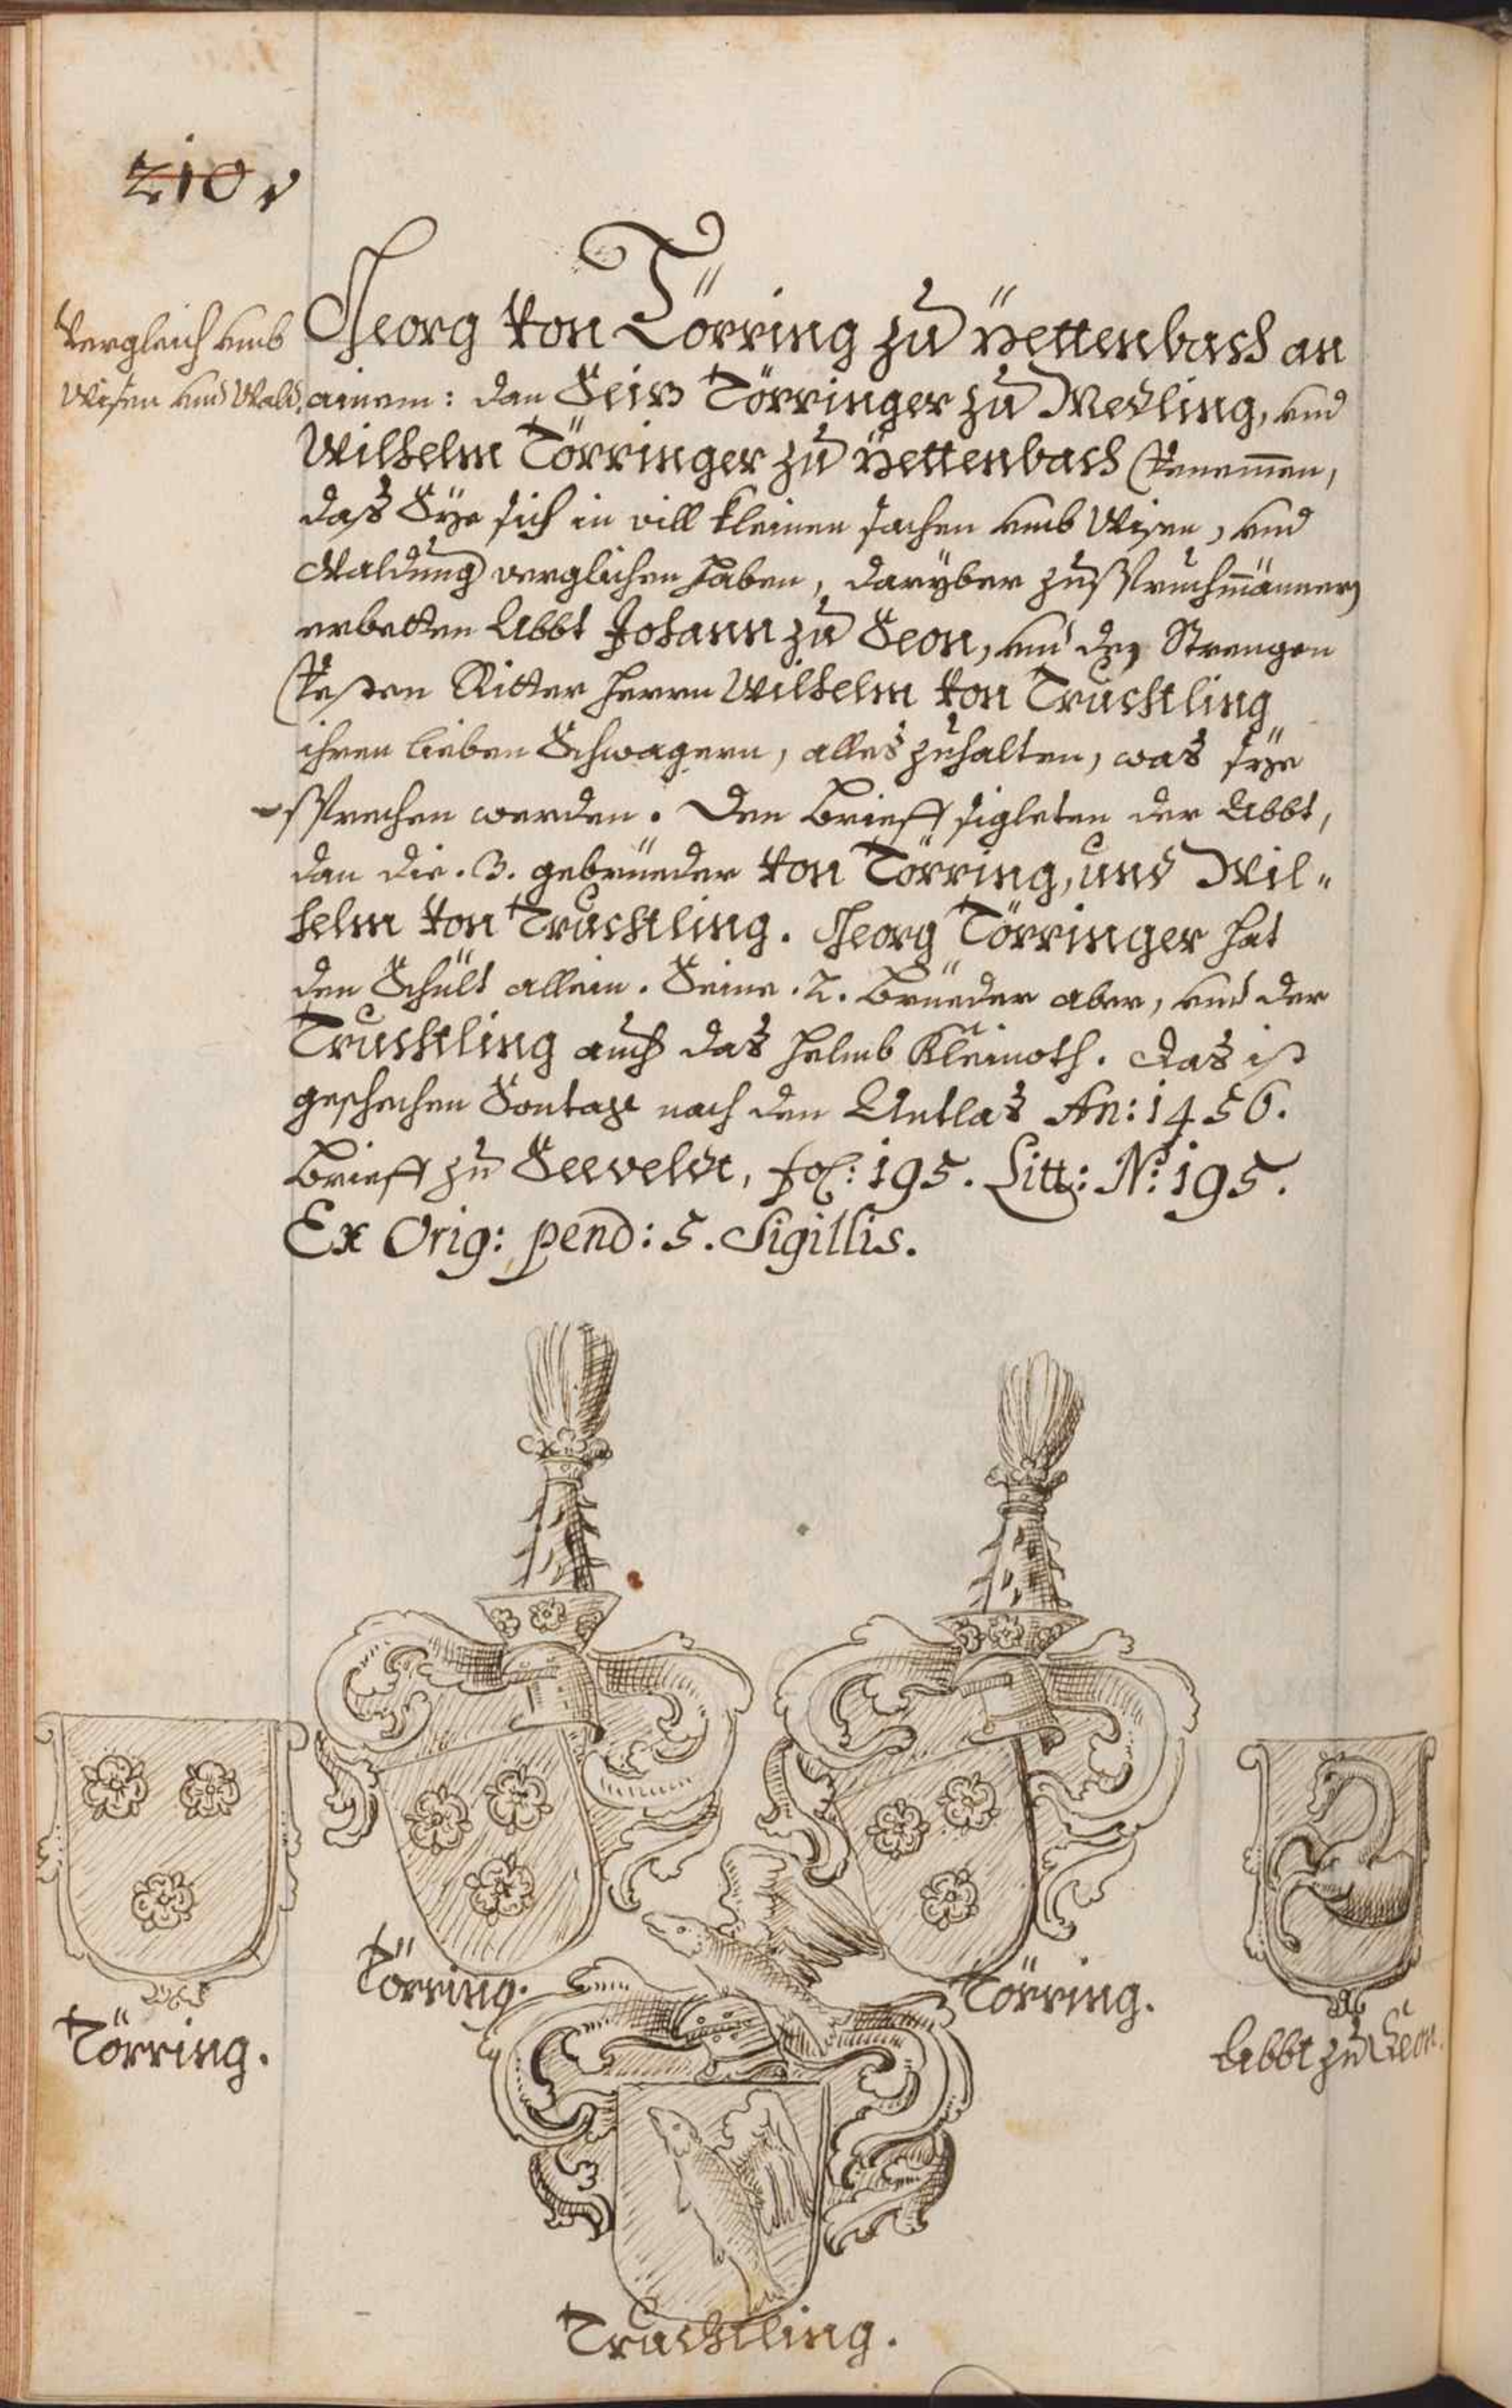 210 v
Vergleich umb
Wisen und Wald.
Georg von Törring zu Pettenbach an
ainem: dan Seiz Törringer zu Medling, und
Wilhelm Törringer zu Pettenbach bekennen,
daß Sÿe sich in vill kleinen sachen umb Wisen, und
Waldung verglichen haben, darÿber zu Spruchmänner
erbetten Abbt Johann zu Seon, und den Strengen
Vesten Ritter herrn Wilhelm von Truchtling
ihren lieben Schwagern, alles zuhalten, was sÿe
sprechen werden. Den Brieff sigleten der Abbt,
dan die .3. gebrüeder von Törring, und Wil„
helm von Truchtling. Georg Törringer hat
den Schilt allein. Seine .2. Brüeder aber, und der
Truchtling auch das helmb Kleinoth. Das ist
geschechen Sontag nach den Antlas An: 1456.
Brieff zu Seeveldt, fol: 195. Litt: N: 195.
Ex Orig: pend: 5. Sigillis.
Törring.
Törring.
Törring.
Abbt zu Seon.
Truchtling.